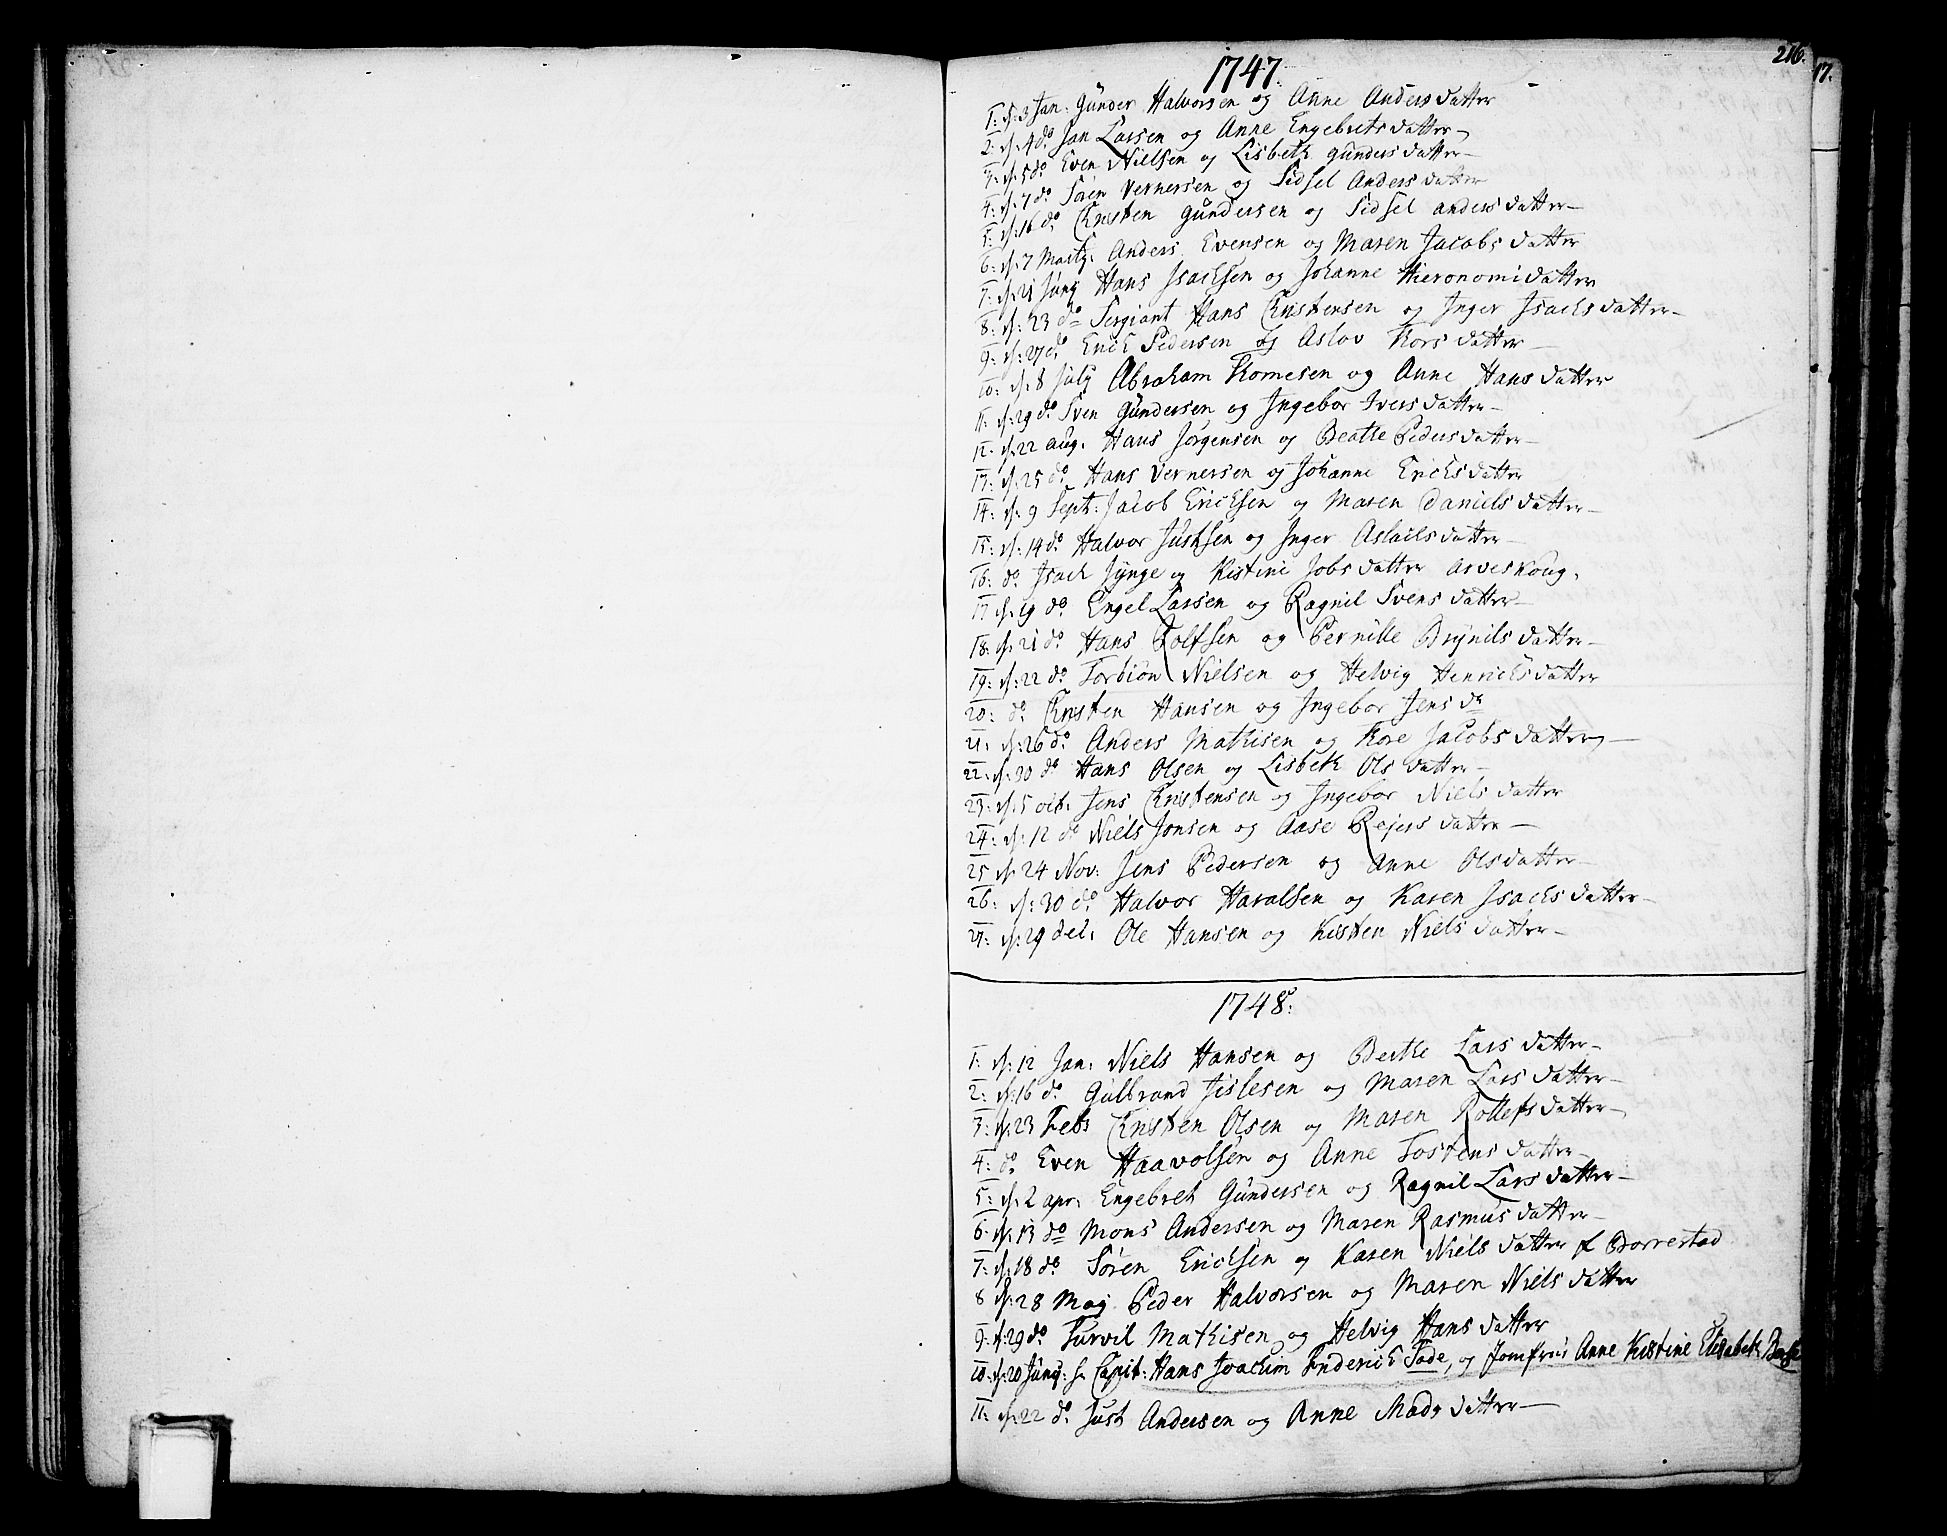 216.
17.
1747.
1: d: 3 Jan: Gunder Halvorsen og Anne Anders datter
2: d: 4 do Jan Larsen og Anne Engebrets datter
3: d: 5 do Even Nielsen og Lisbeth Gunders datter
4: d: 7 do Sören Vernersen og Sidsel Anders datter
5: d: 16 do Christen Gundersen og Sidsel anders datter
6: d: 7 Martij: Anders Evensen og Maren Jacobs datter
7: d: 21 Junij Hans Isachsen og Johanne Hieronomi datter
8: d: 23 do Sergiant Hans Christensen og Inger Isachs datter
9: d: 27 do Erich Pedersen og Aslov Kors datter
10: d: 8 July Abraham Komesen og Anne Hans datter
11: d: 29 do Sven Gundersen og Ingebor Ivers datter
12: d: 22 aug. Hans Jörgensen og Beathe Peders datter
13: d: 25 do Hans Vernersen og Johanne Erichs datter
14: d: 9 Sept: Jacob Erichsen og Maren Daniels datter
15: d: 14 do Halvor Justsen og Inger Aslachs datter
16: do Isach og Kistine Jobs datter
17 d: 19 do Engel Larsen og Ragnil Svens datter
18: d: 21 do Hans Rolfsen og Pernille Brynils datter
19: d: 22 do Torbiön Nielsen og Helvig Henrichs datter
20: do Christen Hansen og Ingebor Jens dr
21: d: 26 do Anders Mathisen og Kore Jacobs datter
22: d: 30 do Hans Olsen og Lisbeth Ols datter
23: d: 5 oct: Jens Christensen og Ingebor Niels datter
24: d: 12 do Niels Jonsen og Aase Rejers datter
25 d: 24 Nov: Jens Pedersen og Anne Ols datter
26: d: 30 do Halvor Haralsen og Karen Isachs datter
27: d: 29 dec: Ole Hansen og Kisten Niels datter
1748:
1: d: 12 Jan: Niels Hansen og Berthe Lars datter
2: d: 16 do Gulbrand Jislesen og Maren Lars datter
3: d: 23 Feb: Christen Olsen og Maren Rollefs datter
4: do Even Haavolsen og Anne Tostens datter
5: d: 2 apr: Engebret Gundersen og Ragnil Lars datter
6: d: 13 do Mons Andersen og Maren Rasmus datter
7: d: 18 do Sören Erichsen og Karen Niels datter f Borrestad
8 d: 28 Maj Peder Halvorsen og Maren Niels datter
9: d: 29 do Turvil Mathisen og Helvig Hans datter
10: d: 20 Junij: h. Capit: Hans Joachim Friderich Tode, og Jomfrui Anne Kistine Elisabeth
11: d: 22 do Just Andersen og Anne Mads datter